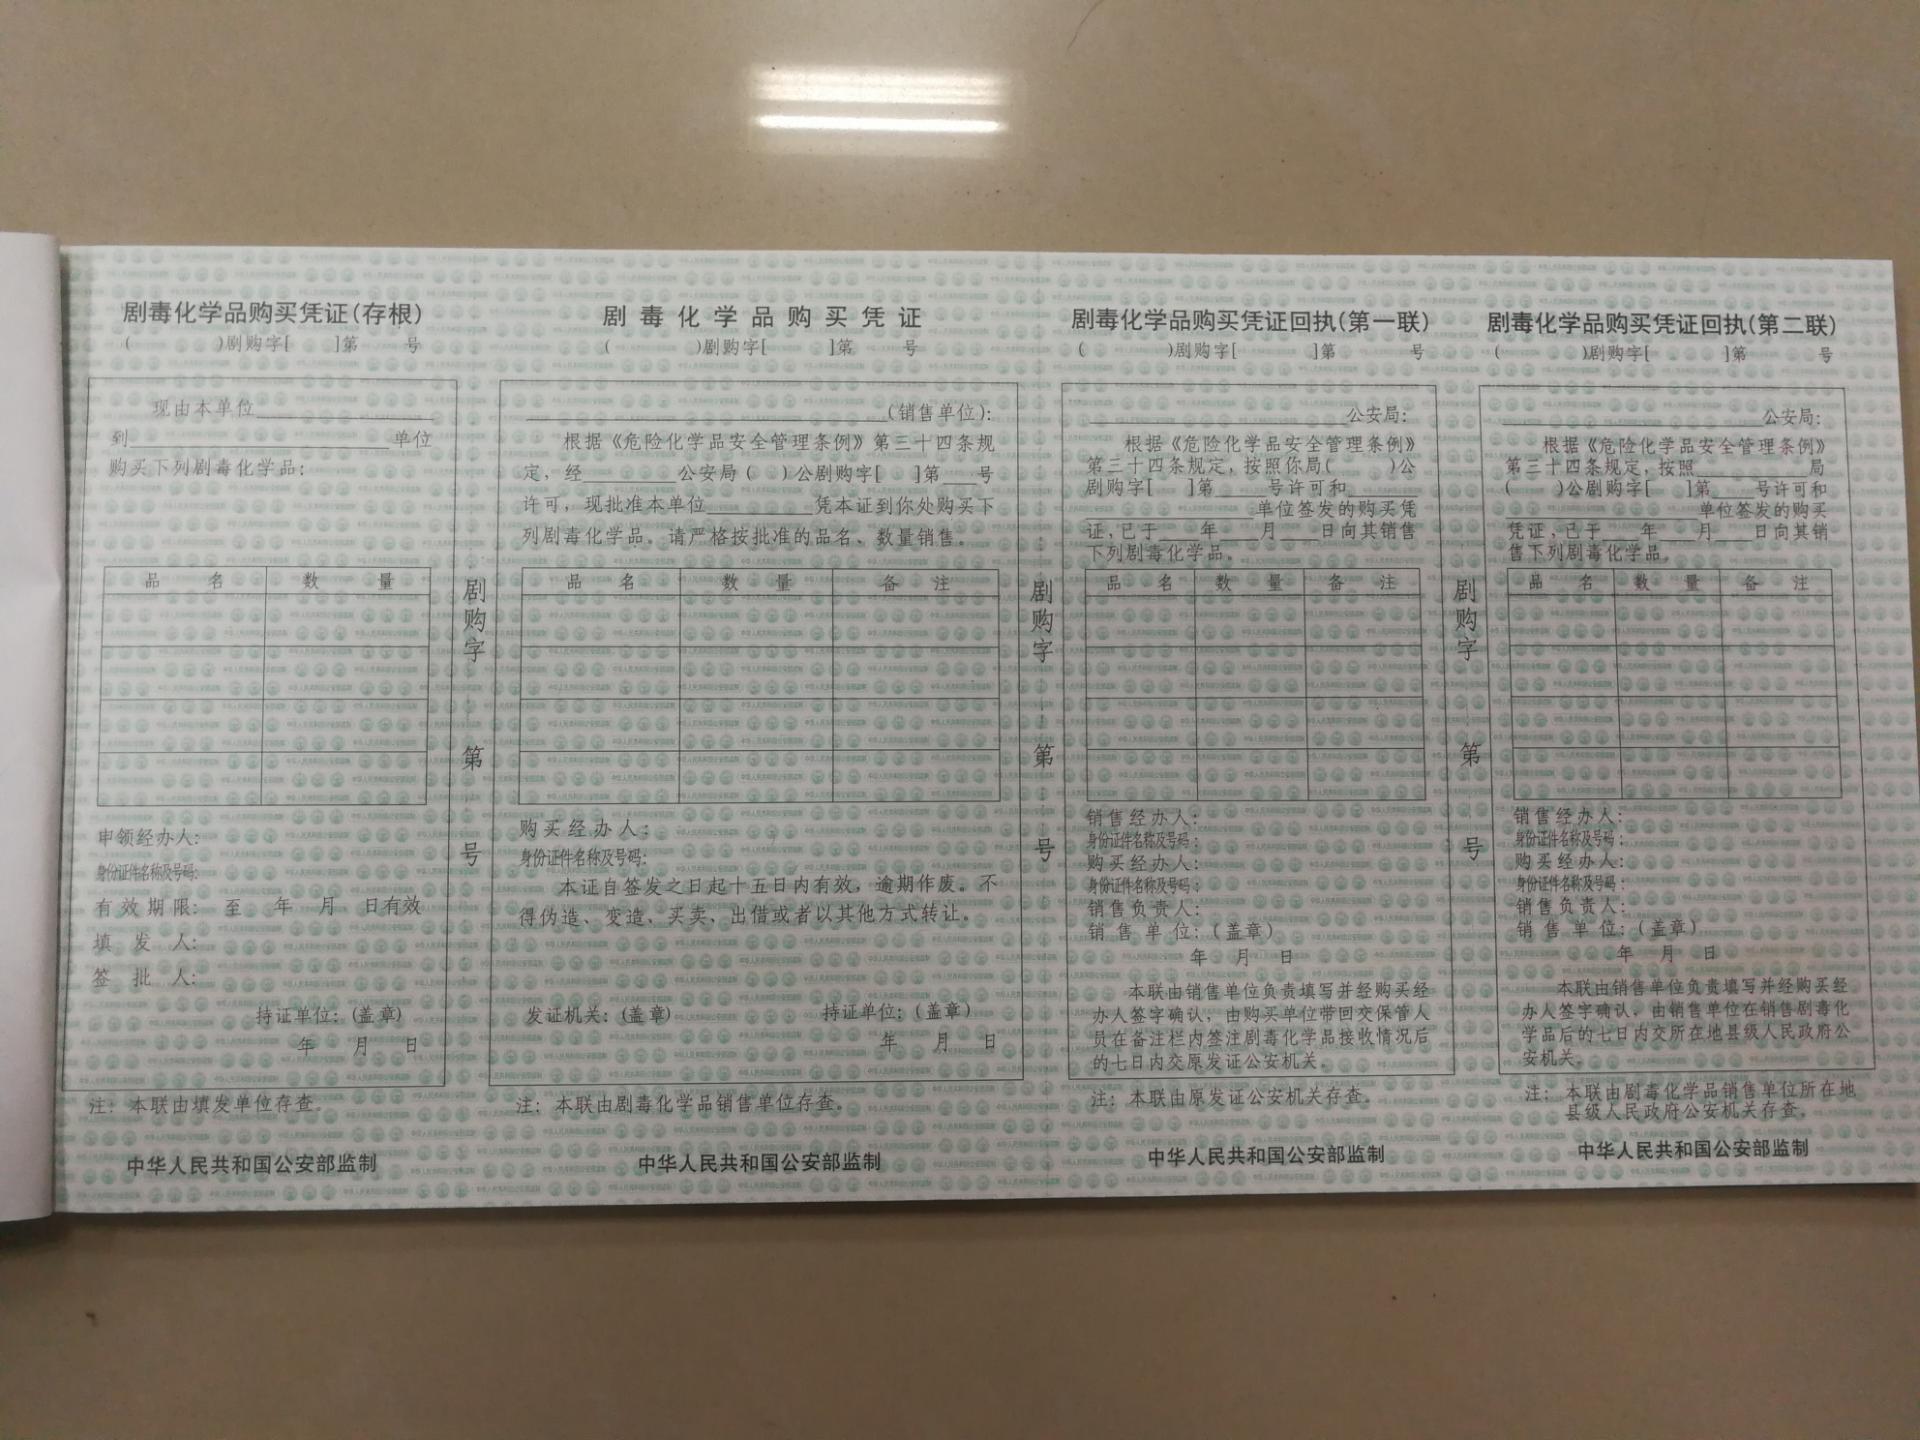 剧毒化学品购买凭证(存根)
( )剧购字[ ]第 号
现由本单位
到 单位
购买下列剧毒化学品:
品 名 数 量
申领经办人:
身份证件名称及号码:
有效期限: 至 年 月 日有效
填 发 人:
签 批 人:
持证单位:(盖章)
年 月 日
注: 本联由填发单位存查。
中华人民共和国公安部监制
剧购字 第 号
剧毒化学品购买凭证
( )剧购字[ ]第 号
(销售单位):
根据《危险化学品安全管理条例》第三十四条规
定, 经 公安局( )公剧购字[ ]第 号
许可, 现批准本单位 凭本证到你处购买下
列剧毒化学品。请严格按批准的品名、数量销售。
品 名 数 量 备 注
购买经办人:
身份证件名称及号码:
本证自签发之日起十五日内有效, 逾期作废。不
得伪造、变造、买卖、出借或者以其他方式转让。
发证机关:(盖章) 持证单位:(盖章)
年 月 日
注: 本联由剧毒化学品销售单位存查。
中华人民共和国公安部监制
剧购字 第 号
剧毒化学品购买凭证回执(第一联)
( )剧购字[ ]第 号
公安局:
根据《危险化学品安全管理条例》
第三十四条规定, 按照你局( )公
剧购字[ ]第 号许可和
单位签发的购买凭
证, 已于 年 月 日向其销售
下列剧毒化学品。
品 名 数 量 备 注
销售经办人:
身份证件名称及号码:
购买经办人:
身份证件名称及号码:
销售负责人:
销售单位:(盖章)
年 月 日
本联由销售单位负责填写并经购买经
办人签字确认, 由购买单位带回交保管人
员在备注栏内签注剧毒化学品接收情况后
的七日内交原发证公安机关。
注: 本联由原发证公安机关存查。
中华人民共和国公安部监制
剧购字 第 号
剧毒化学品购买凭证回执(第二联)
( )剧购字[ ]第 号
公安局:
根据《危险化学品安全管理条例》
第三十四条规定, 按照 局
( )公剧购字[ ]第 号许可和
单位签发的购买
凭证, 已于 年 月 日向其销
售下列剧毒化学品。
品 名 数 量 备 注
销售经办人:
身份证件名称及号码:
购买经办人:
身份证件名称及号码:
销售负责人:
销售单位:(盖章)
年 月 日
本联由销售单位负责填写并经购买经
办人签字确认, 由销售单位在销售剧毒化
学品后的七日内交所在地县级人民政府公
安机关。
注: 本联由剧毒化学品销售单位所在地
县级人民政府公安机关存查。
中华人民共和国公安部监制